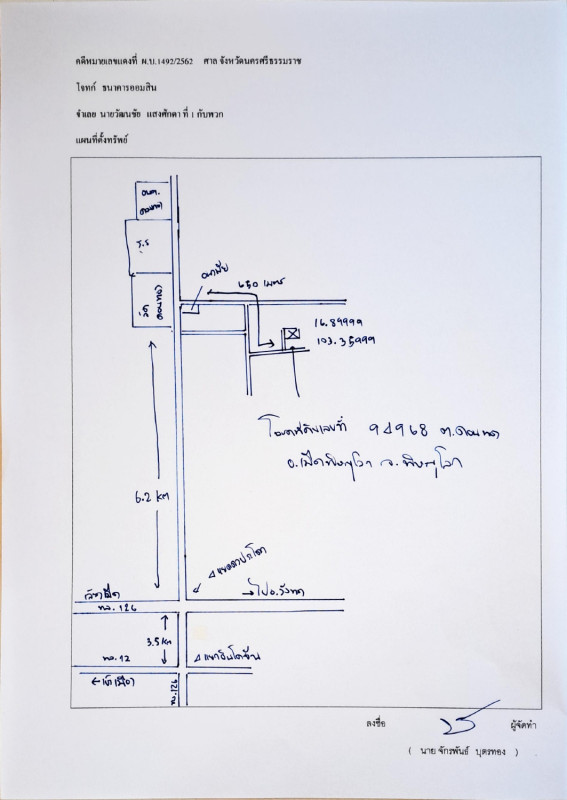 คดีหมายเลขแดงที่ ผ.บ.1492/2562 ศาล จังหวัดนครศรีธรรมราช
โจทก์ ธนาคารออมสิน
จำเลย นายวัฒนชัย แสงศักดา ที่ 1 กับพวก
แผนที่ตั้งทรัพย์
อบต.
ดอนทอง
ร.ร
วัด
ดอนทอง
อนามัย
650 เมตร
16.89999
103.35999
โฉนดที่ดินเลขที่ 94968 ต.ดอนทอง
อ.เมืองพิษณุโลก จ.พิษณุโลก
6.2 km
→ไป อ.วังทอง
ทล.126
3.5 km
ทล.12
สี่แยกอินโดจีน
←เข้าเมือง
ลงชื่อ ผู้จัดทำ
( นาย จักรพันธ์ บุตรทอง )